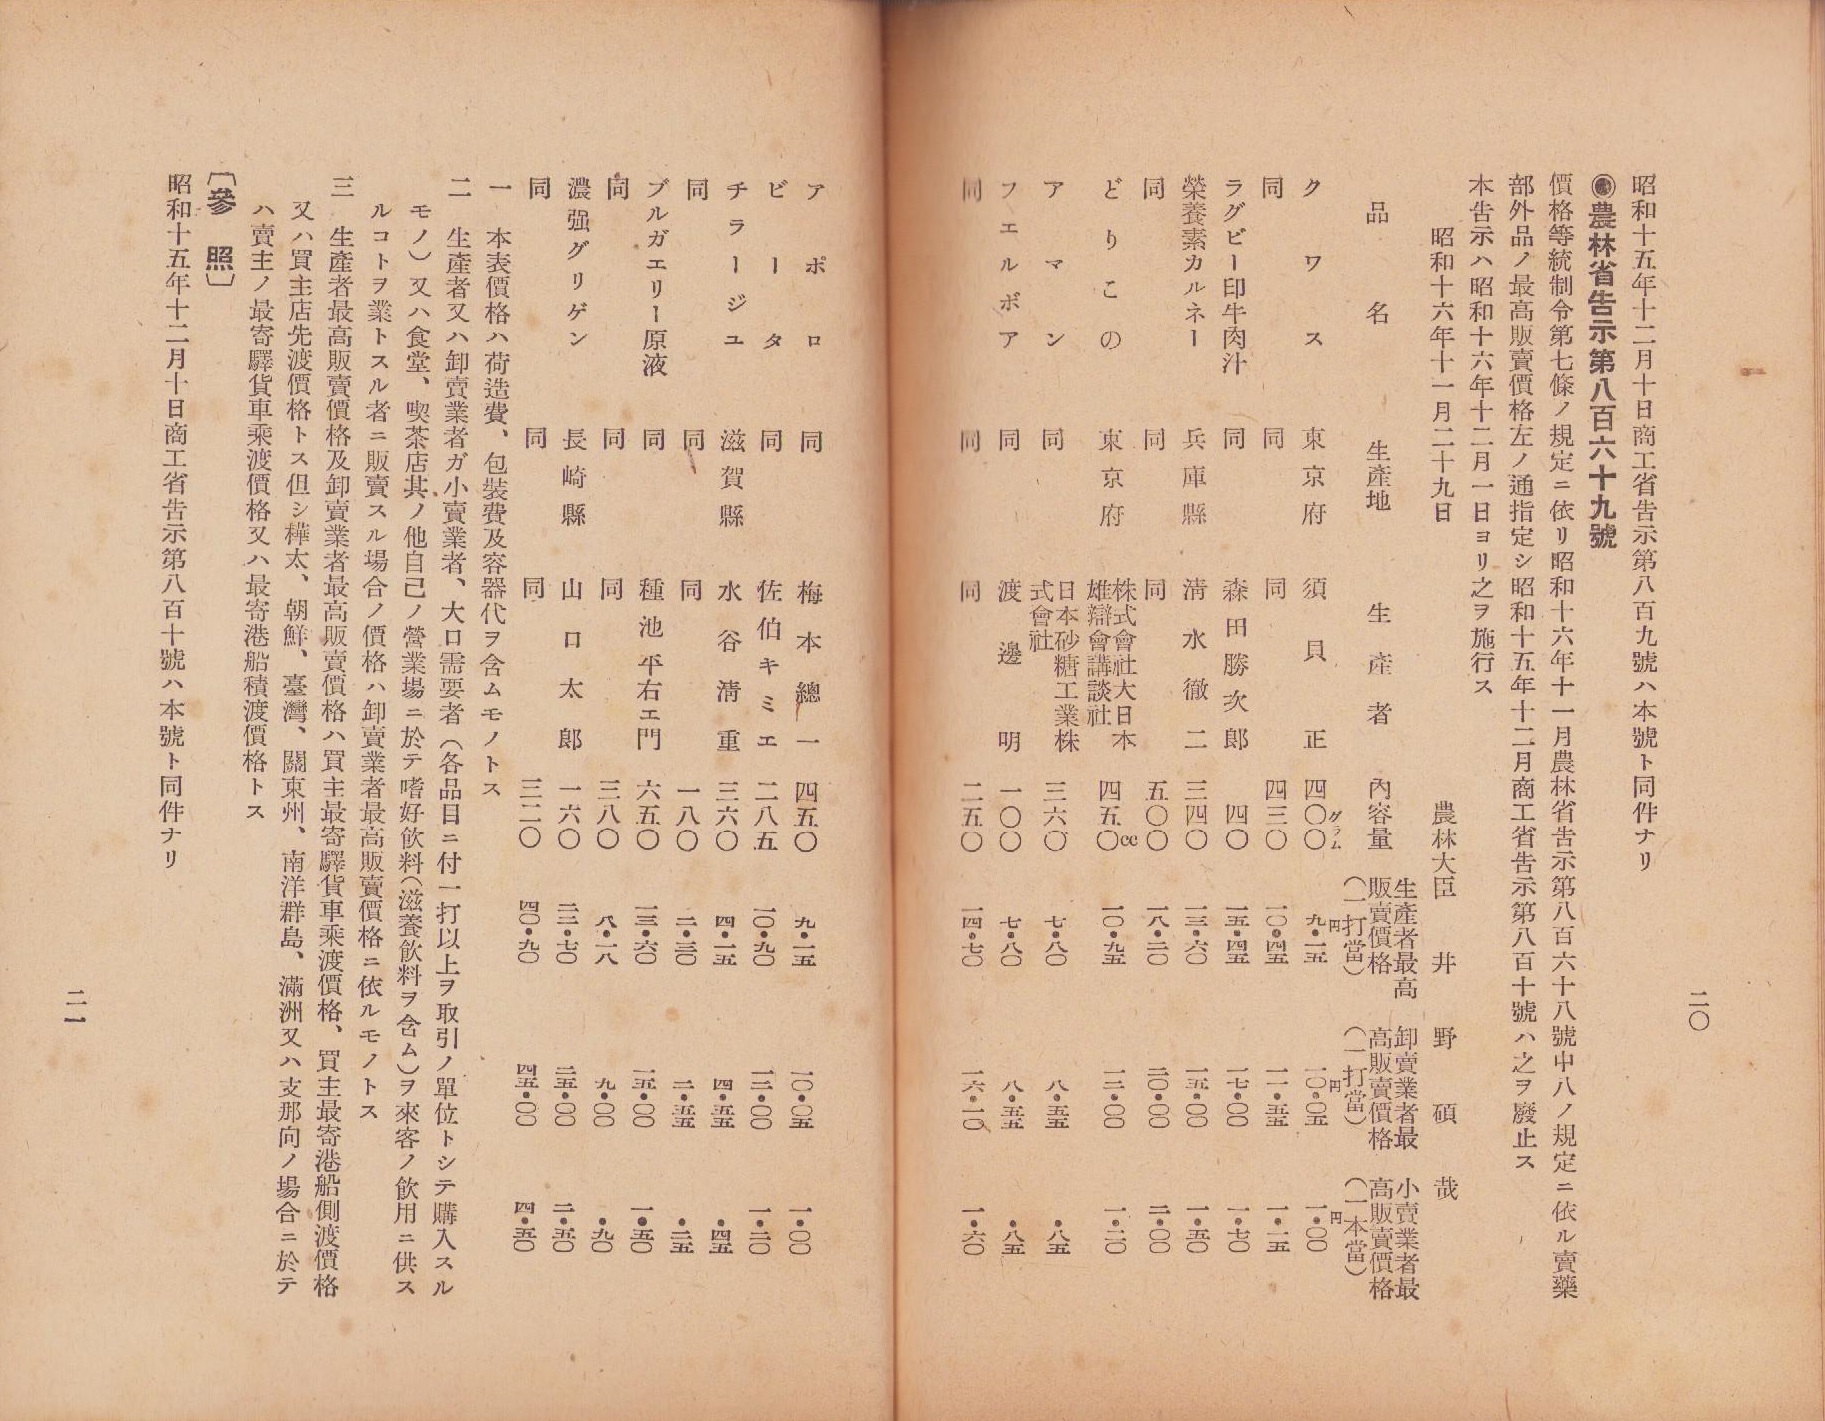 二〇
昭和十五年十二月十日商工省告示第八百九號ハ本號ト同件ナリ
農林省告示第八百六十九號
價格等統制令第七條ノ規定ニ依リ昭和十六年十一月農林省告示第八百六十八號中八ノ規定ニ依ル賣藥
部外品ノ最高販賣價格左ノ通指定シ昭和十五年十二月商工省告示第八百十號ハ之ヲ廢止ス
本告示ハ昭和十六年十二月一日ヨリ之ヲ施行ス
昭和十六年十一月二十九日
農林大臣 井野碩哉
品名 生產地 生產者 內容量 生產者最高販賣價格(一打當) 卸賣業者最高販賣價格(一打當) 小賣業者最高販賣價格(一本當)
クワス 東京府 須貝正 四〇〇グラム 九・一五円 一〇・〇五円 一・〇〇円
同 同 同 四三〇 一〇・四五 一一・五五 一・一五
ラグビー印牛肉汁 同 森田勝次郎 四〇 一五・四五 一七・〇〇 一・七〇
榮養素カルネー 兵庫縣 淸水徹二 三四〇 一三・六〇 一五・〇〇 一・五〇
同 同 同 五〇〇 一八・二〇 二〇・〇〇 二・〇〇
どりこの 東京府 株式會社大日本雄辯會講談社 四五〇cc 一〇・九五 一二・〇〇 一・二〇
アマン 同 日本砂糖工業株式會社 三六〇 七・八〇 八・五五 ・八五
フエルボア 同 渡邊明 一〇〇 七・八〇 八・五五 ・八五
同 同 同 二五〇 一四・七〇 一六・一〇 一・六〇
アポロ 同 梅本總一 四五〇 九・一五 一〇・〇五 一・〇〇
ビータ 同 佐伯キミエ 二八五 一〇・九〇 一二・〇〇 一・二〇
チラージユ 滋賀縣 水谷淸重 三六〇 四・一五 四・五五 ・四五
同 同 同 一八〇 二・三〇 二・五五 ・二五
ブルガエリー原液 同 種池平右エ門 六五〇 一三・六〇 一五・〇〇 一・五〇
同 同 同 三八〇 八・一八 九・〇〇 ・九〇
濃强グリゲン 長崎縣 山口太郎 一六〇 二二・七〇 二五・〇〇 二・五〇
同 同 同 三二〇 四〇・九〇 四五・〇〇 四・五〇
一 本表價格ハ荷造費、包裝費及容器代ヲ含ムモノトス
二 生產者又ハ卸賣業者ガ小賣業者、大口需要者(各品目ニ付一打以上ヲ取引ノ單位トシテ購入スル
モノ)又ハ食堂、喫茶店其ノ他自己ノ營業場ニ於テ嗜好飮料(滋養飮料ヲ含ム)ヲ來客ノ飮用ニ供ス
ルコトヲ業トスル者ニ販賣スル場合ノ價格ハ卸賣業者最高販賣價格ニ依ルモノトス
三 生產者最高販賣價格及卸賣業者最高販賣價格ハ買主最寄驛貨車乘渡價格、買主最寄港船側渡價格
又ハ買主店先渡價格トス但シ樺太、朝鮮、臺灣、關東州、南洋群島、滿洲又ハ支那向ノ場合ニ於テ
ハ賣主ノ最寄驛貨車乘渡價格又ハ最寄港船積渡價格トス
〔參照〕
昭和十五年十二月十日商工省告示第八百十號ハ本號ト同件ナリ
二一